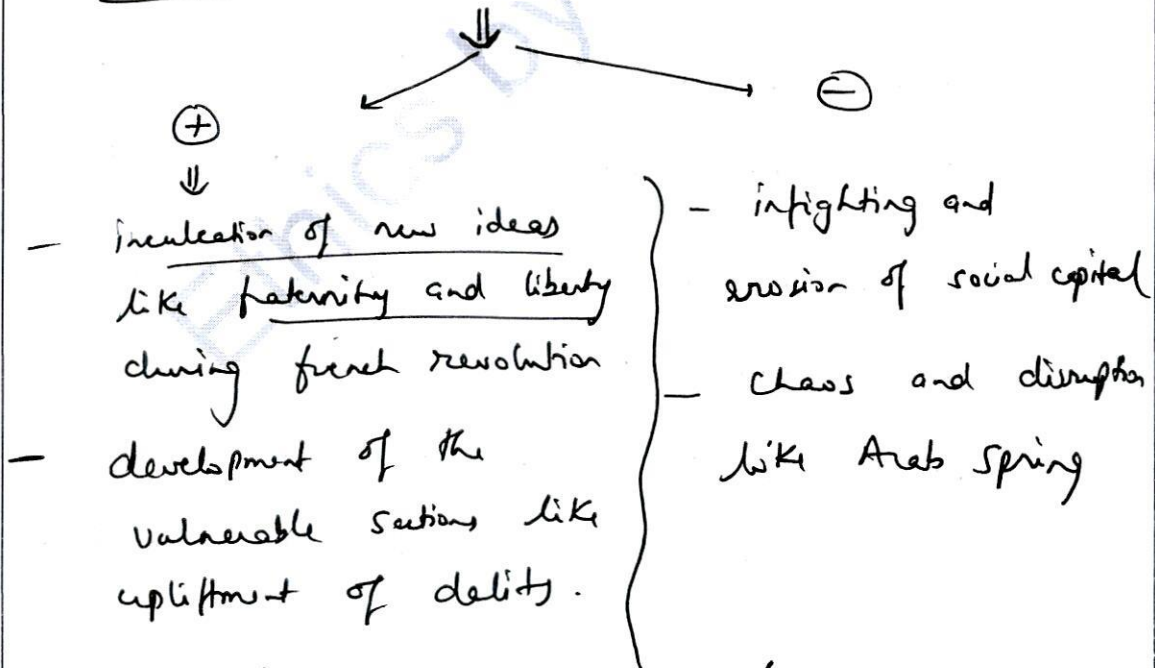 Ethics by
⇓
⊕
⊖
⇓
– inculcation of new ideas
like fraternity and liberty
during french revolution
– development of the
vulnerable sections like
upliftment of dalits.
– infighting and
erosion of social capital
– Chaos and disruption
like Arab Spring